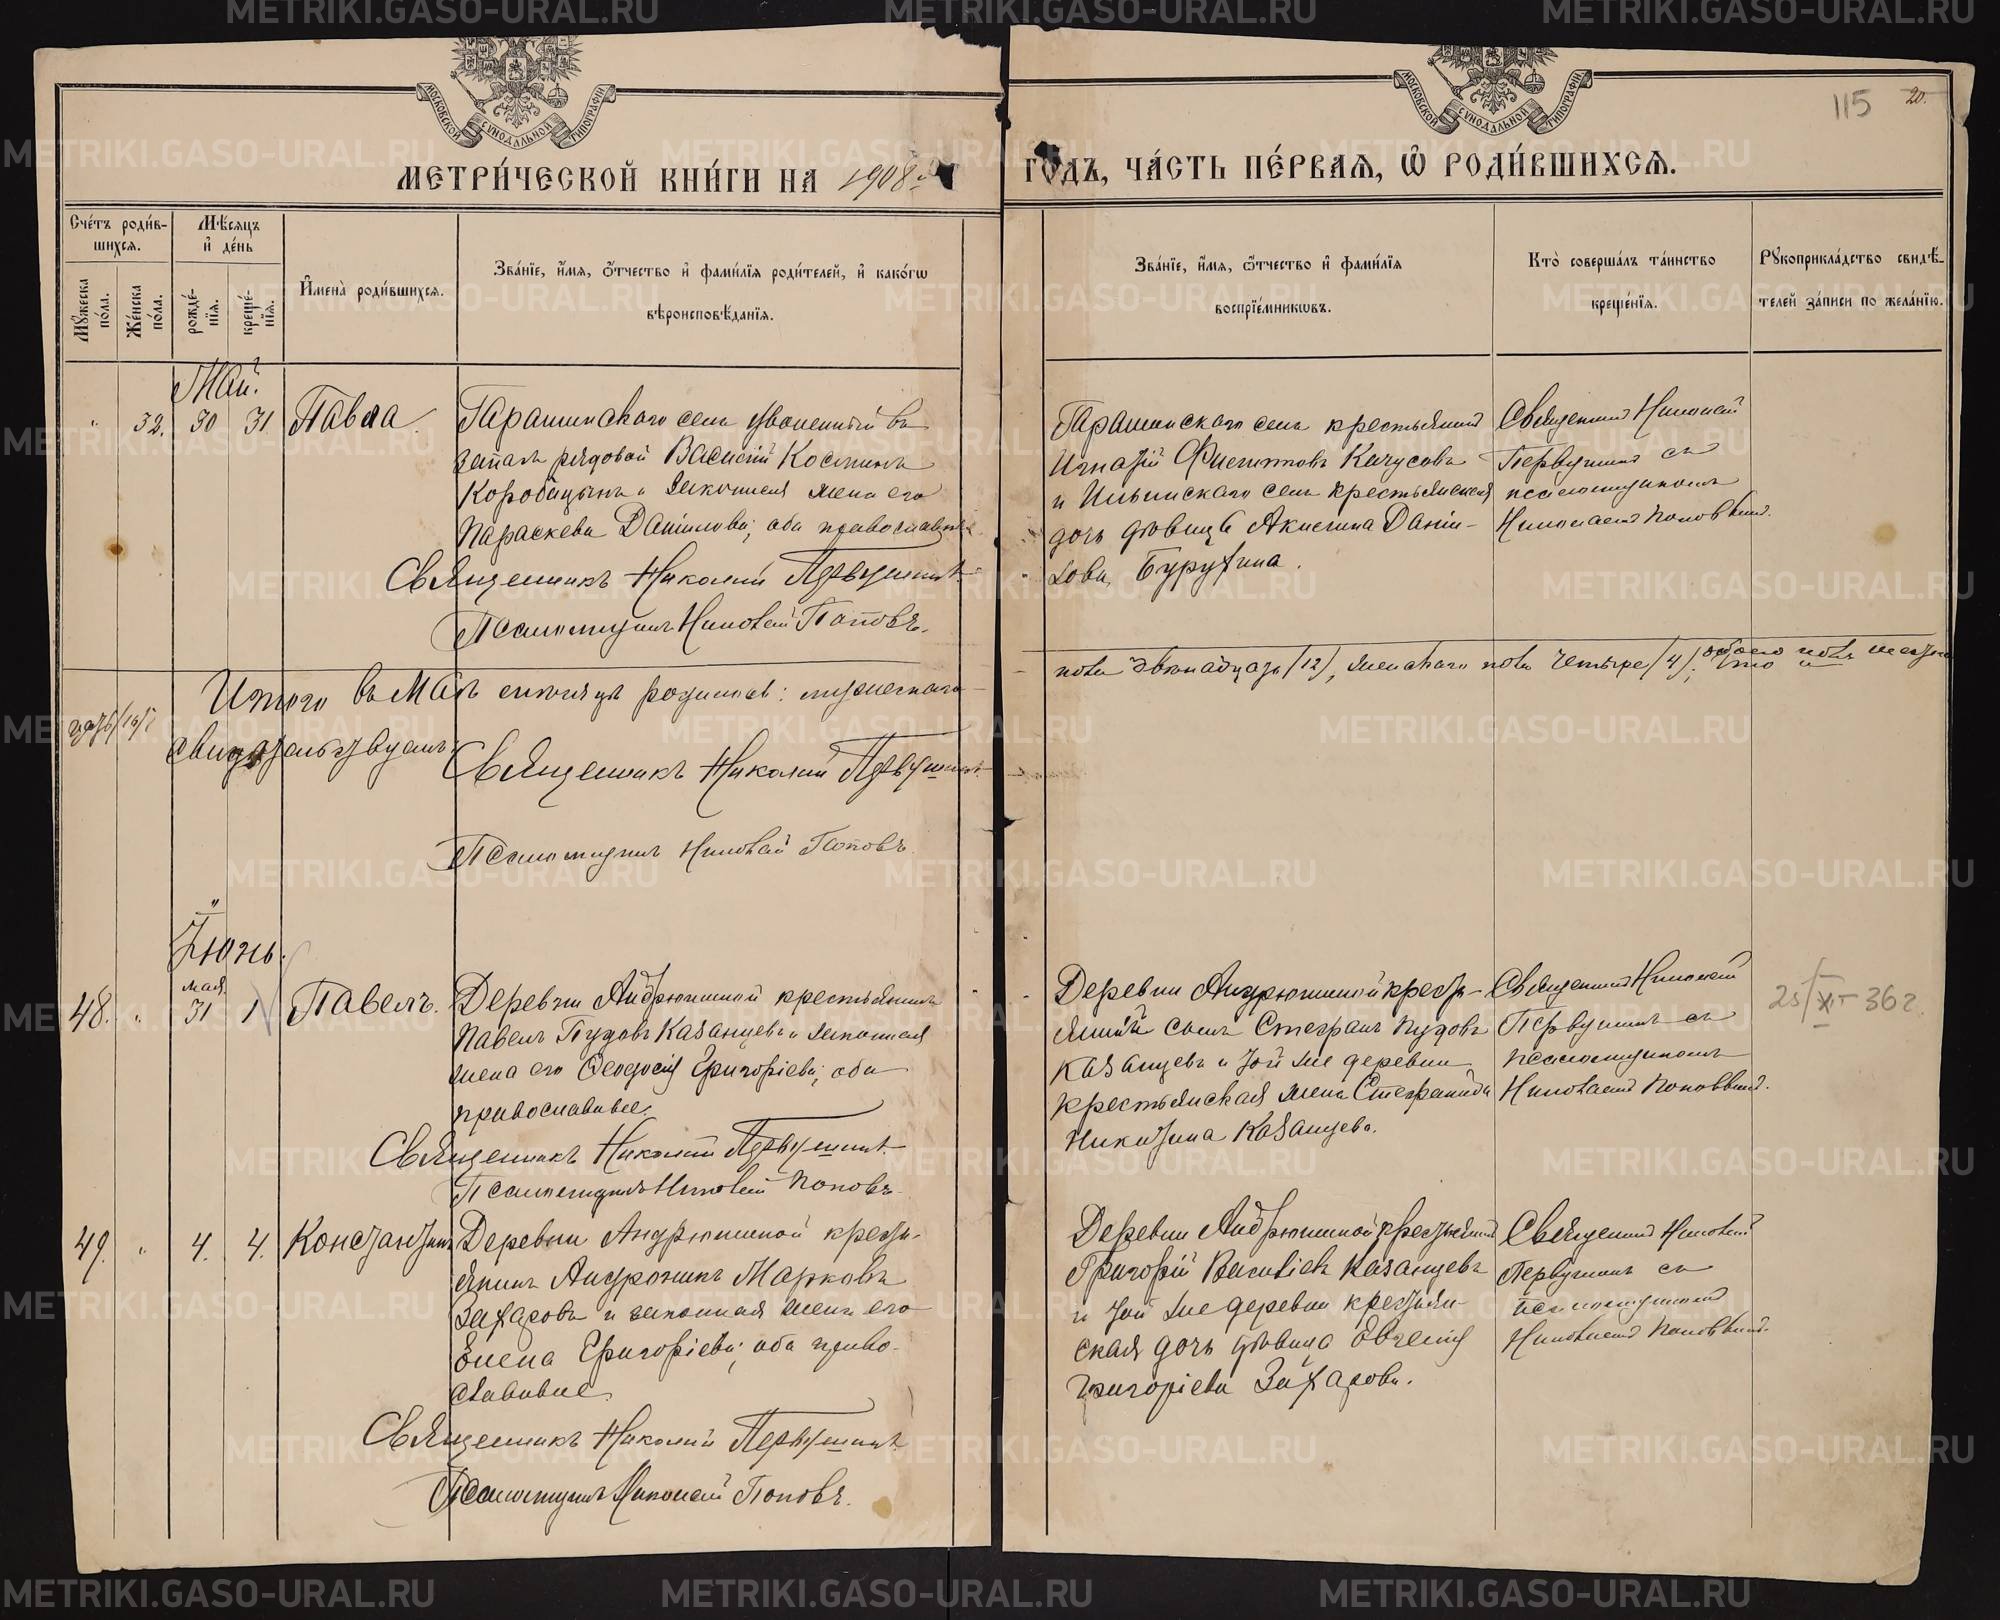 МОСКОВСКОЙ СѴНОДАЛЬНОЙ ТИПОГРАФІИ
МОСКОВСКОЙ СѴНОДАЛЬНОЙ ТИПОГРАФІИ
115 20.
МЕТРИ́ЧЕСКОЙ КНИ́ГИ НА 1908
ГО́ДЪ, ЧА́СТЬ ПЕ́РВАѦ, Ѡ РОДИ́ВШИХСѦ.
Сче́тъ роди́в-
шихсѧ.
Мѣ́сѧцъ
и҆ де́нь
Мꙋ́жеска по́ла.
Же́нска по́ла.
рожде́-
нїѧ.
креще́-
нїѧ.
И҆мена̀ роди́вшихсѧ.
Зва́нїе, и҆́мѧ, ѻ҆́тчество и҆ фами́лїѧ роди́телей, и҆ како́гѡ
вѣроисповѣ́данїѧ.
Зва́нїе, и҆́мѧ, ѻ҆́тчество и҆ фами́лїѧ
воспрїе́мникѡвъ.
Кто̀ соверша́лъ та́инство
креще́нїѧ.
Рꙋкоприкла́дство свидѣ́-
телей за́писи по жела́нїю.
Май.
" 32. 30 31 Павла.
Гарашинскаго села уволенный въ
запасъ рядовой Василій Косминъ
Коробицынъ и законная жена его
Параскева Даніилова; оба православные
Священникъ Николай Первушинъ
Псаломщикъ Николай Поповъ.
Гарашинскаго села крестьянинъ
Игнатій Филипповъ Качусовъ
и Ильинскаго села крестьянская
дочь дѣвица Акилина Даніи-
лова
Священникъ Николай
Первушинъ съ
псаломщикомъ
Николаемъ Поповымъ.
Итого въ Маѣ мѣсяцѣ родилось: мужескаго
пола двѣнадцать /12/, женскаго пола четыре /4/, обоего пола шест-
надцать /16/
свидѣтельствуемъ:
Священникъ Николай Первушинъ
Псаломщикъ Николай Поповъ
Іюнь.
мая
48. " 31 1 Павелъ.
Деревни Андрюшиной крестьянинъ
Павелъ Пудовъ Казанцевъ и законная
жена его Ѳеодосія Григоріева; оба
православные.
Священникъ Николай Первушинъ
Псаломщикъ Николай Поповъ
Деревни Андрюшиной кресть-
янскій сынъ Стефанъ Пудовъ
Казанцевъ и той же деревни
крестьянская жена Стефанида
Никитина Казанцева.
Священникъ Николай
Первушинъ съ
псаломщикомъ
Николаемъ Поповымъ.
25/XI-36г
49. " 4. 4. Константинъ
Деревни Андрюшиной кресть-
янинъ Андроникъ Марковъ
Захаровъ и законная жена его
Елена Григоріева; оба право-
славные.
Священникъ Николай Первушинъ
Псаломщикъ Николай Поповъ.
Деревни Андрюшиной крестьянинъ
Григорій Васильевъ Казанцевъ
и той же деревни крестьян-
ская дочь дѣвица Евгенія
Григоріева Захарова.
Священникъ Николай
Первушинъ съ
псаломщикомъ
Николаемъ Поповымъ.
METRIKI.GASO-URAL.RU